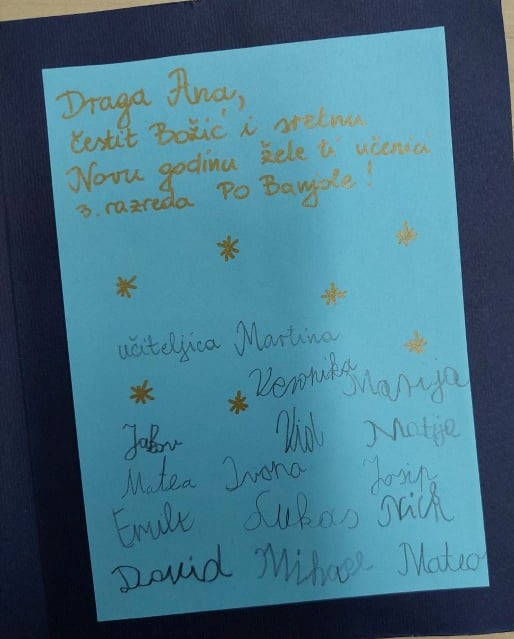 Draga Ana,
čestit Božić i sretnu
Novu godinu žele ti učenici
3. razreda PO Banjole!
učiteljica Martina
Veronika Marija
Jakov Vid Matija
Matea Ivona Josip
Lukas Nick
David Mihael Mateo